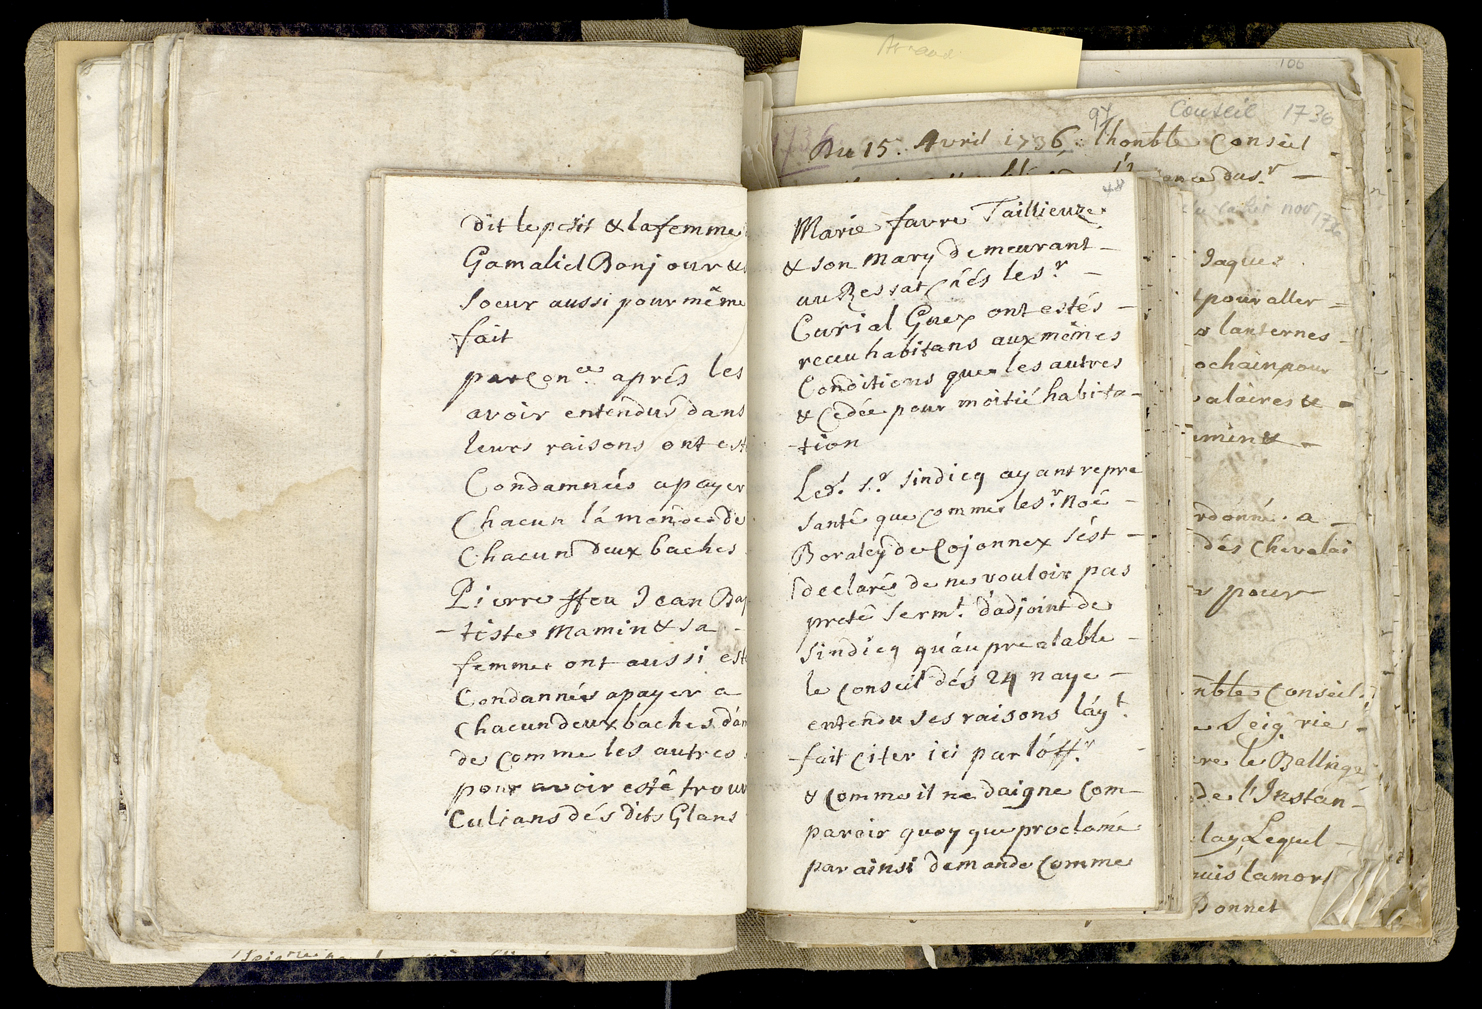 dit le petit & la femme
Gamaliel Bonjour &
soeur aussi pour même
fait
par con.ce aprés les
avoir entendus dans
leurs raisons ont est
Condamnés a payer
Chacun lámende de
Chacun deux baches
Pierre ffeu Jean Bap
- tiste Mamin & sa -
femme ont aussi est
Condannés a payer a
Chacun deux baches dám
de comme les autres
pour avoir esté trouv
Culians dés dits Glans
48
Marie favre Taillieuze
& son Mary demeurant -
au Ressat chés le s.r -
Curial Guex ont estés -
receu habitans aux mêmes
Conditions que les autres
& Cedée pour moitié habita-
-tion
Led.t s.r sindicq ayant repre
santé que comme le s.r Noé -
Boraley de Cojonnex s'ést -
declaré de ne vouloir pas
preté serm.t d'adjoint de
sindicq qu'áu prealable -
le conseil dés 24 n'aye -
entendu ses raisons láy.t
fait citer ici par lóff.r -
& comme il ne daigne com-
paroir quoy que proclamé
par ainsi demande comme
Arnaud
106
97 Conseil 1736
Du 15. Avril 1736, l'honble Conseil
Jaques
pour aller -
lanternes -
ochain pour
alaires & -
ement -
rdonné a -
dés Chevalai
pour
nble Conseil
Seig.rie
re le Ballinge
de l'Instan-
lay Lequel -
puis la mort
Bonnet